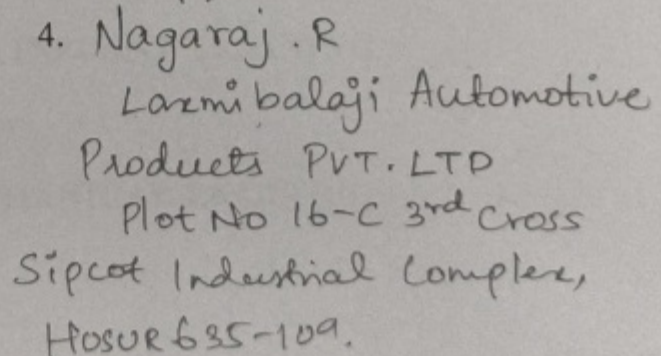 4. Nagaraj . R
Laxmi balaji Automotive
Products PVT. LTD
Plot No 16-C 3rd Cross
Sipcot Industrial Complex,
HOSUR 635-109.